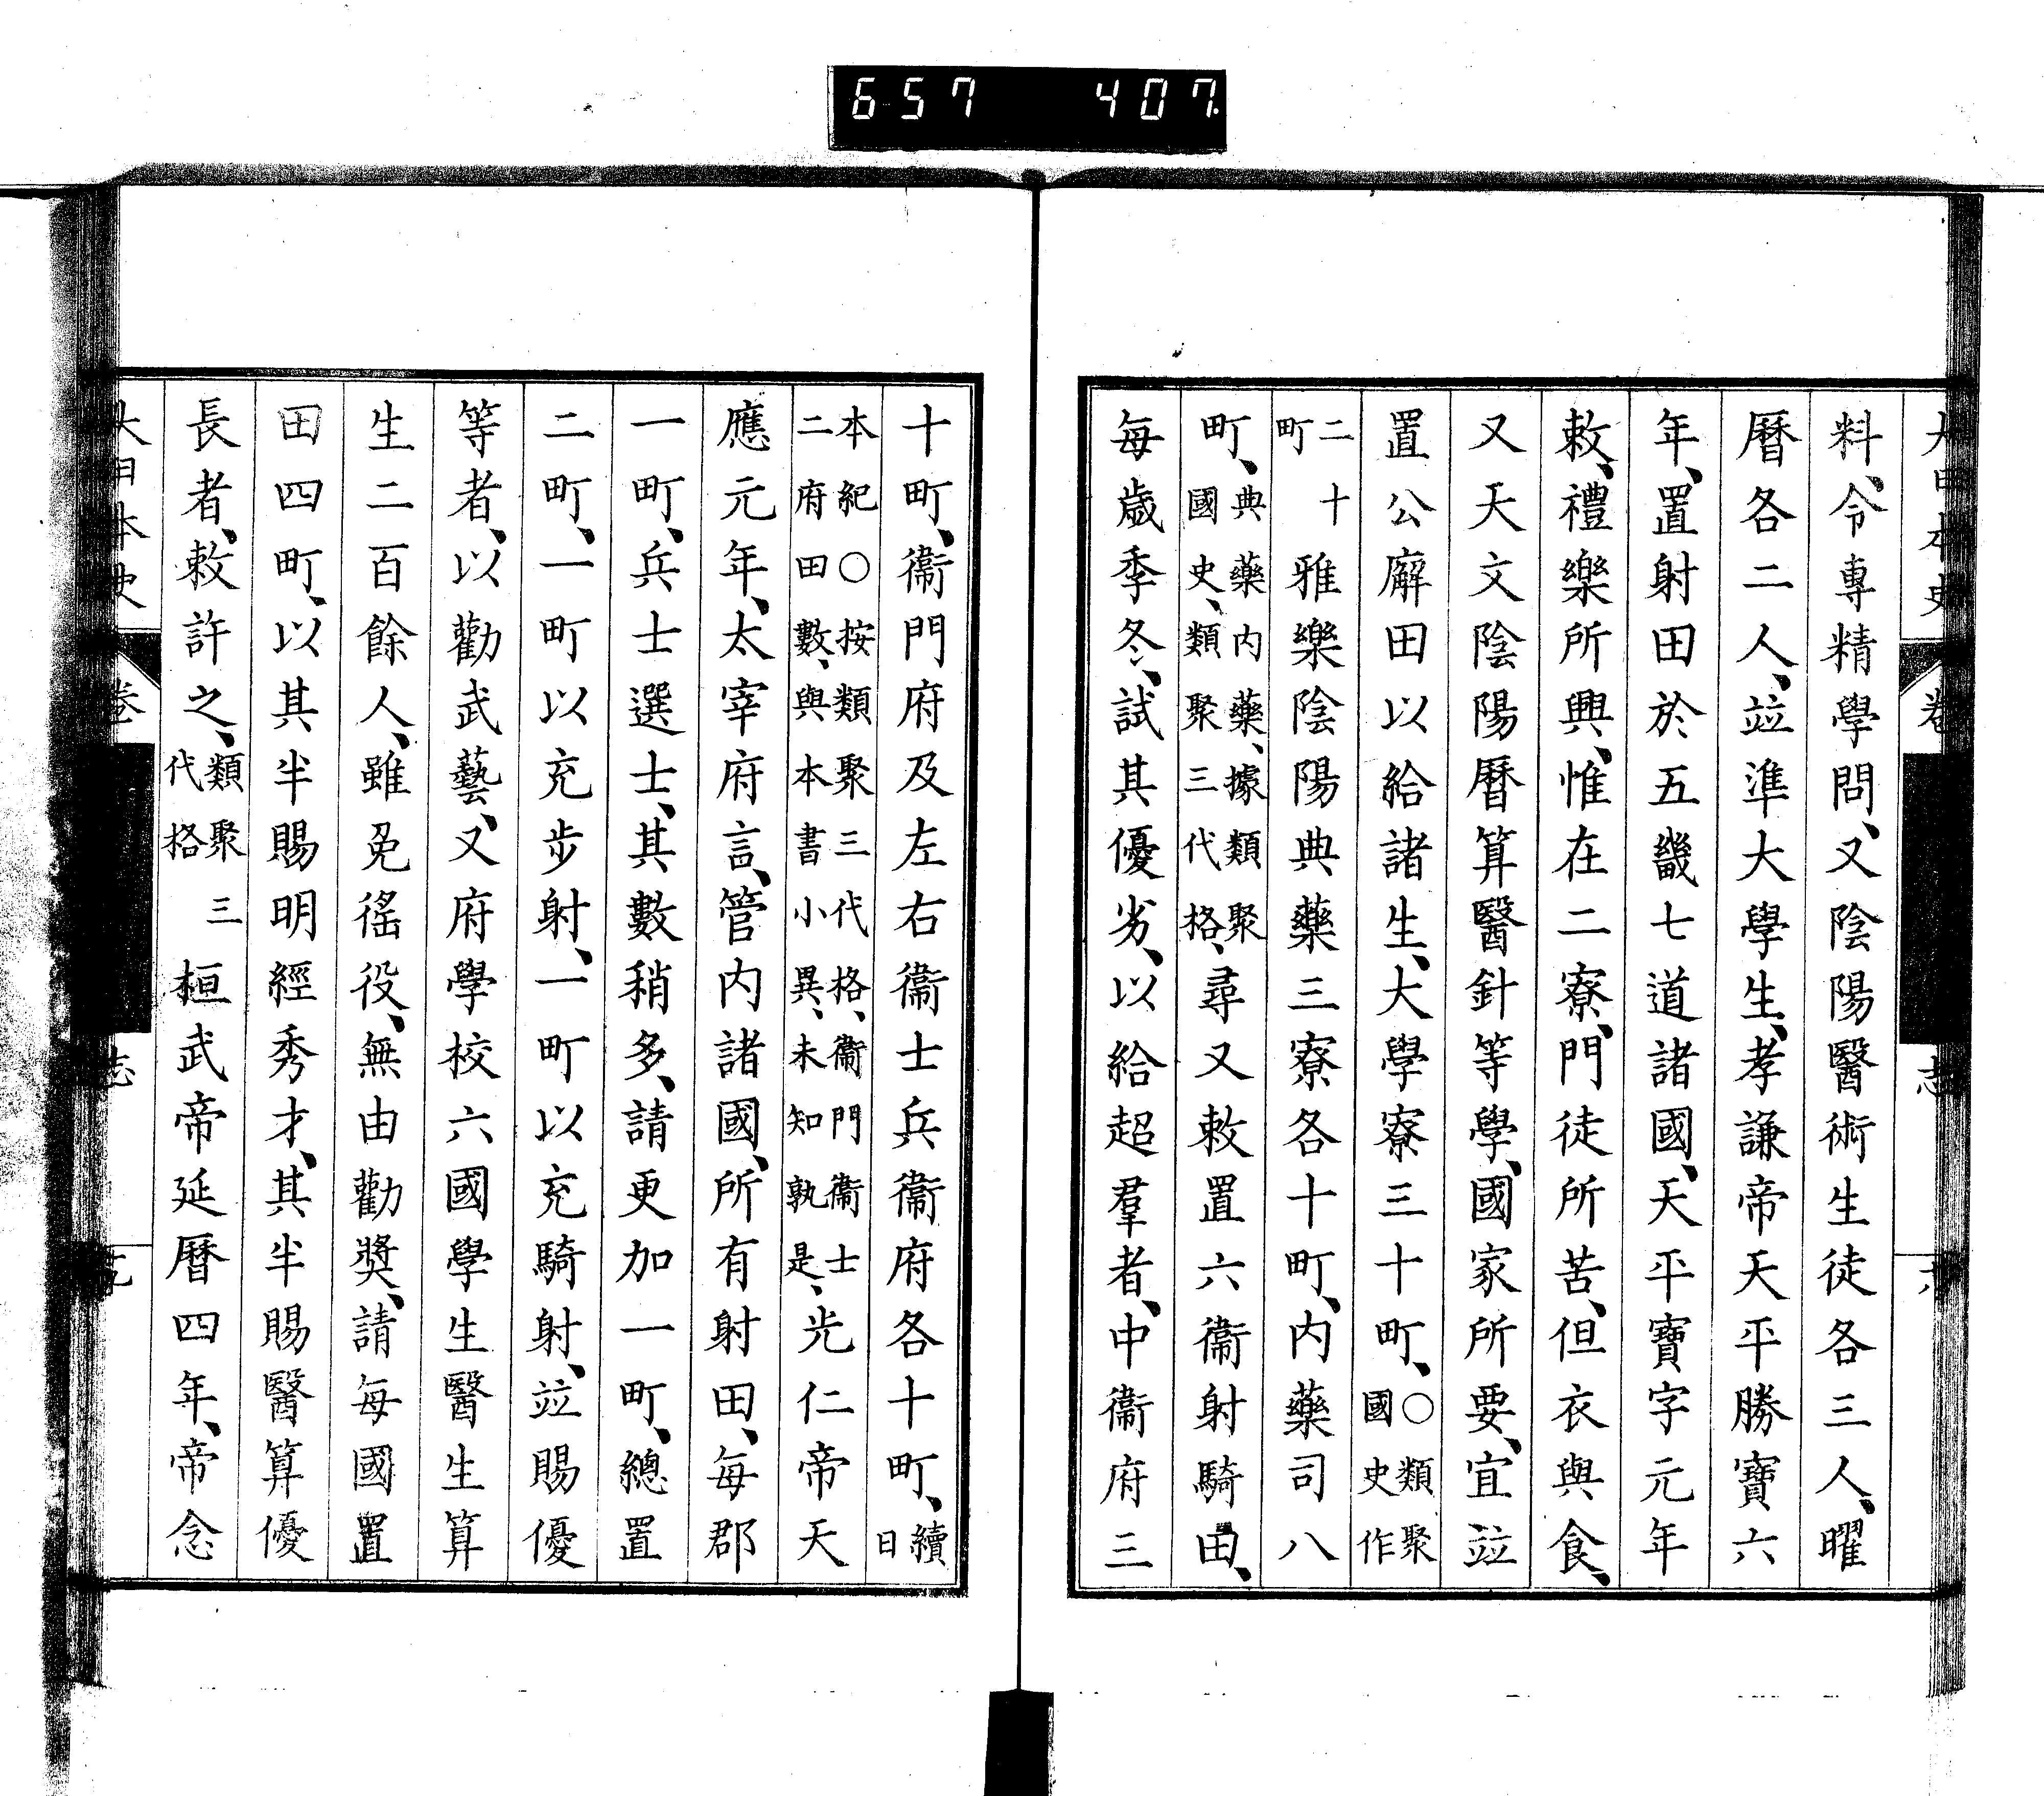 657 407
料、令專精學問、又陰陽醫術生徒各三人、曜
曆各二人、竝準大學生、孝謙帝天平勝寶六
年、置射田於五畿七道諸國、天平寶字元年
敕、禮樂所興、惟在二寮、門徒所苦、但衣與食、
又天文陰陽曆算醫針等學、國家所要、宜竝
置公廨田以給諸生、大學寮三十町、○類聚國史作
二十町雅樂陰陽典藥三寮各十町、内藥司八
町、典藥内藥、據類聚國史、類聚三代格、尋又敕置六衞射騎田、
每歲季冬、試其優劣、以給超羣者、中衞府三
十町、衞門府及左右衞士兵衞府各十町、續日
本紀○按類聚三代格、衞門衞士二府田數、與本書小異、未知孰是、光仁帝天
應元年、太宰府言、管内諸國、所有射田、每郡
一町、兵士選士、其數稍多、請更加一町、總置
二町、一町以充步射、一町以充騎射、竝賜優
等者、以勸武藝、又府學校六國學生醫生算
生二百餘人、雖免徭役、無由勸奬、請每國置
田四町、以其半賜明經秀才、其半賜醫算優
長者、敕許之、類聚三代格桓武帝延曆四年、帝念
大日本史 卷 志